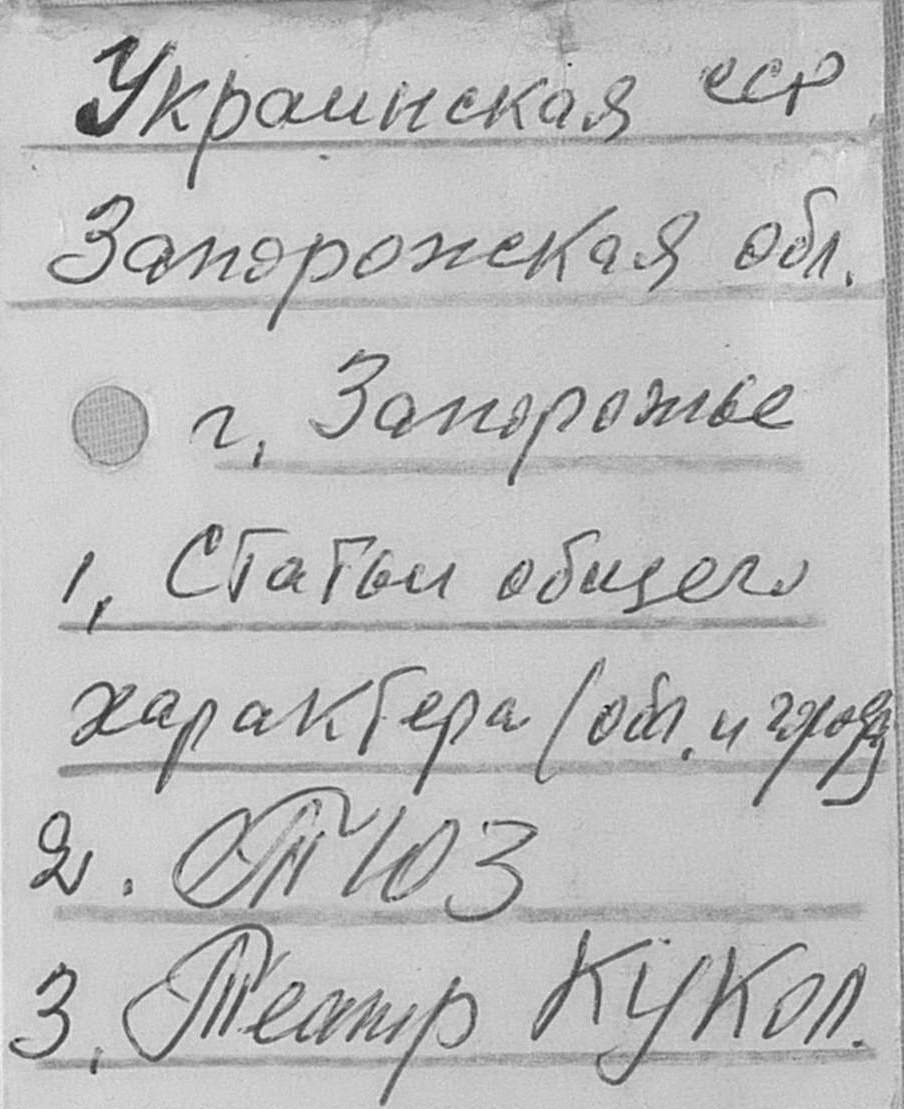 Украинская ССР
Запорожская обл.
г. Запорожье
1, Статьи общего
характера (обл. и город)
2. ТЮЗ
3. Театр Кукол.